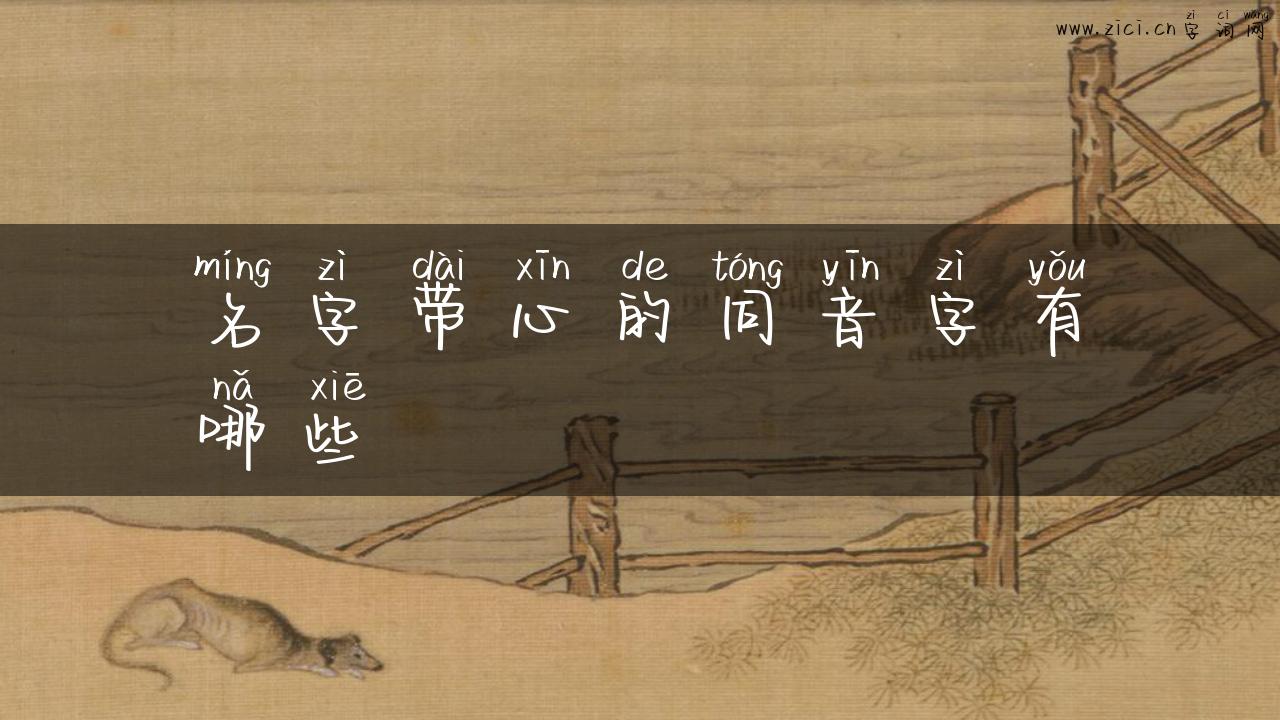 zì cí wǎng
www.zici.cn 字词网
míng zì dài xīn de tóng yīn zì yǒu
名字带心的同音字有
nǎ xiē
哪些